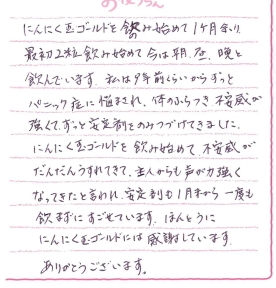 にんにく玉ゴールドを飲み始めて1ケ月余り
最初2粒飲み始めて今は朝、昼、晩と
飲んでいます。私は9年前くらいからずっと
パニック症に悩まされ、体のふらつき不安感が
強くて、ずっと安定剤をのみつづけてきました。
にんにく玉ゴールドを飲み始めて、不安感が
だんだんうすれてきて、主人からも声が力強く
なってきたと言われ、安定剤も1月末から一度も
飲まずにすごせています。ほんとうに
にんにく玉ゴールドには感謝しています。
ありがとうございます。